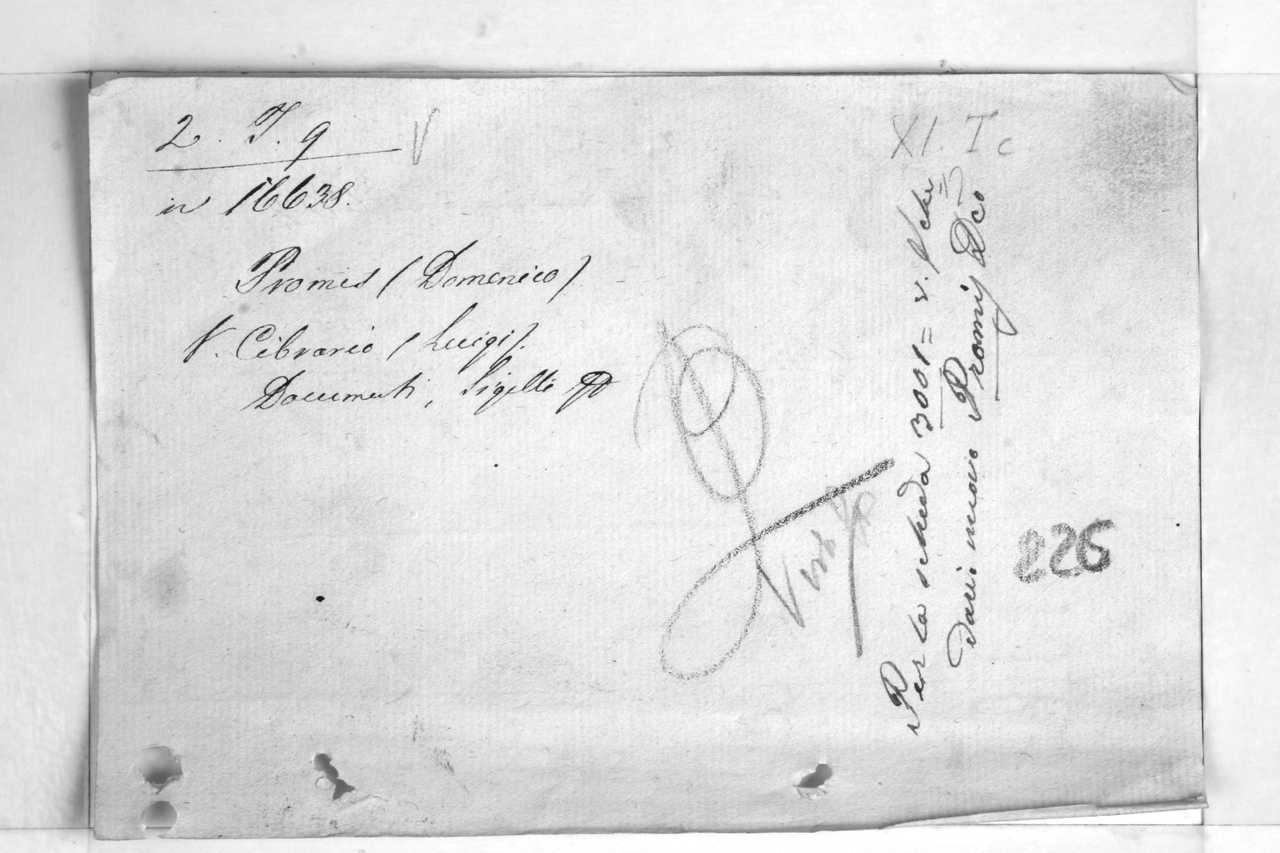 2. T. 9
V
in 16638.
Promis (Domenico)
V. Cibrario (Luigi).
Documenti, Sigilli
XI. T c
Per la scheda 3001 = v. Sche
dario nuovo Promis Dco
Vers
226